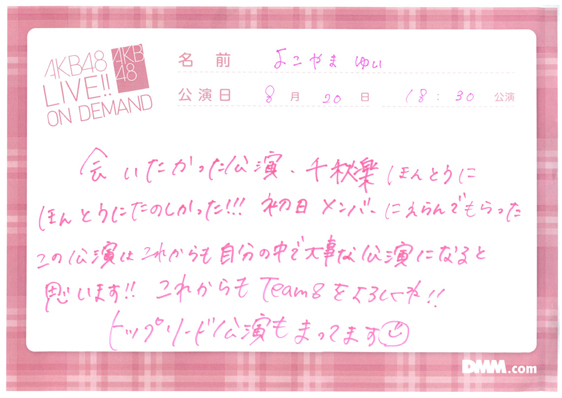 AKB48
LIVE!!
ON DEMAND
AKB
48
名前 よこやま ゆい
公演日 8月20日 18:30 公演
会いたかった公演、千秋楽 ほんとうに
ほんとうにたのしかった!!! 初日 メンバーにえらんでもらった
この公演はこれからも自分の中で大事な公演になると
思います!! これからも Team8 をよろしくね!!
トップリード公演もまってます
DMM.com